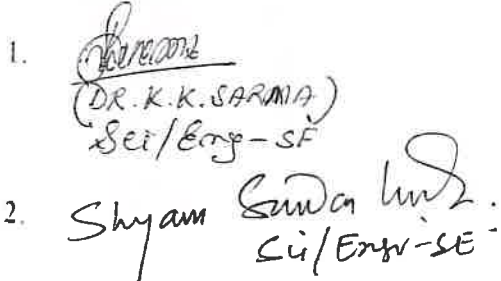 1.
(DR. K.K. SARMA)
Sci/Eng-SF
2. Shyam Sundar
Sci/Engr-SE